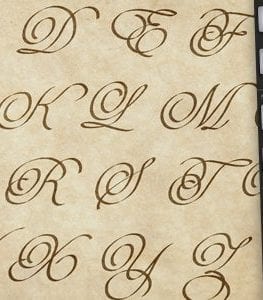 D E F
K L M
R S T
X Y Z